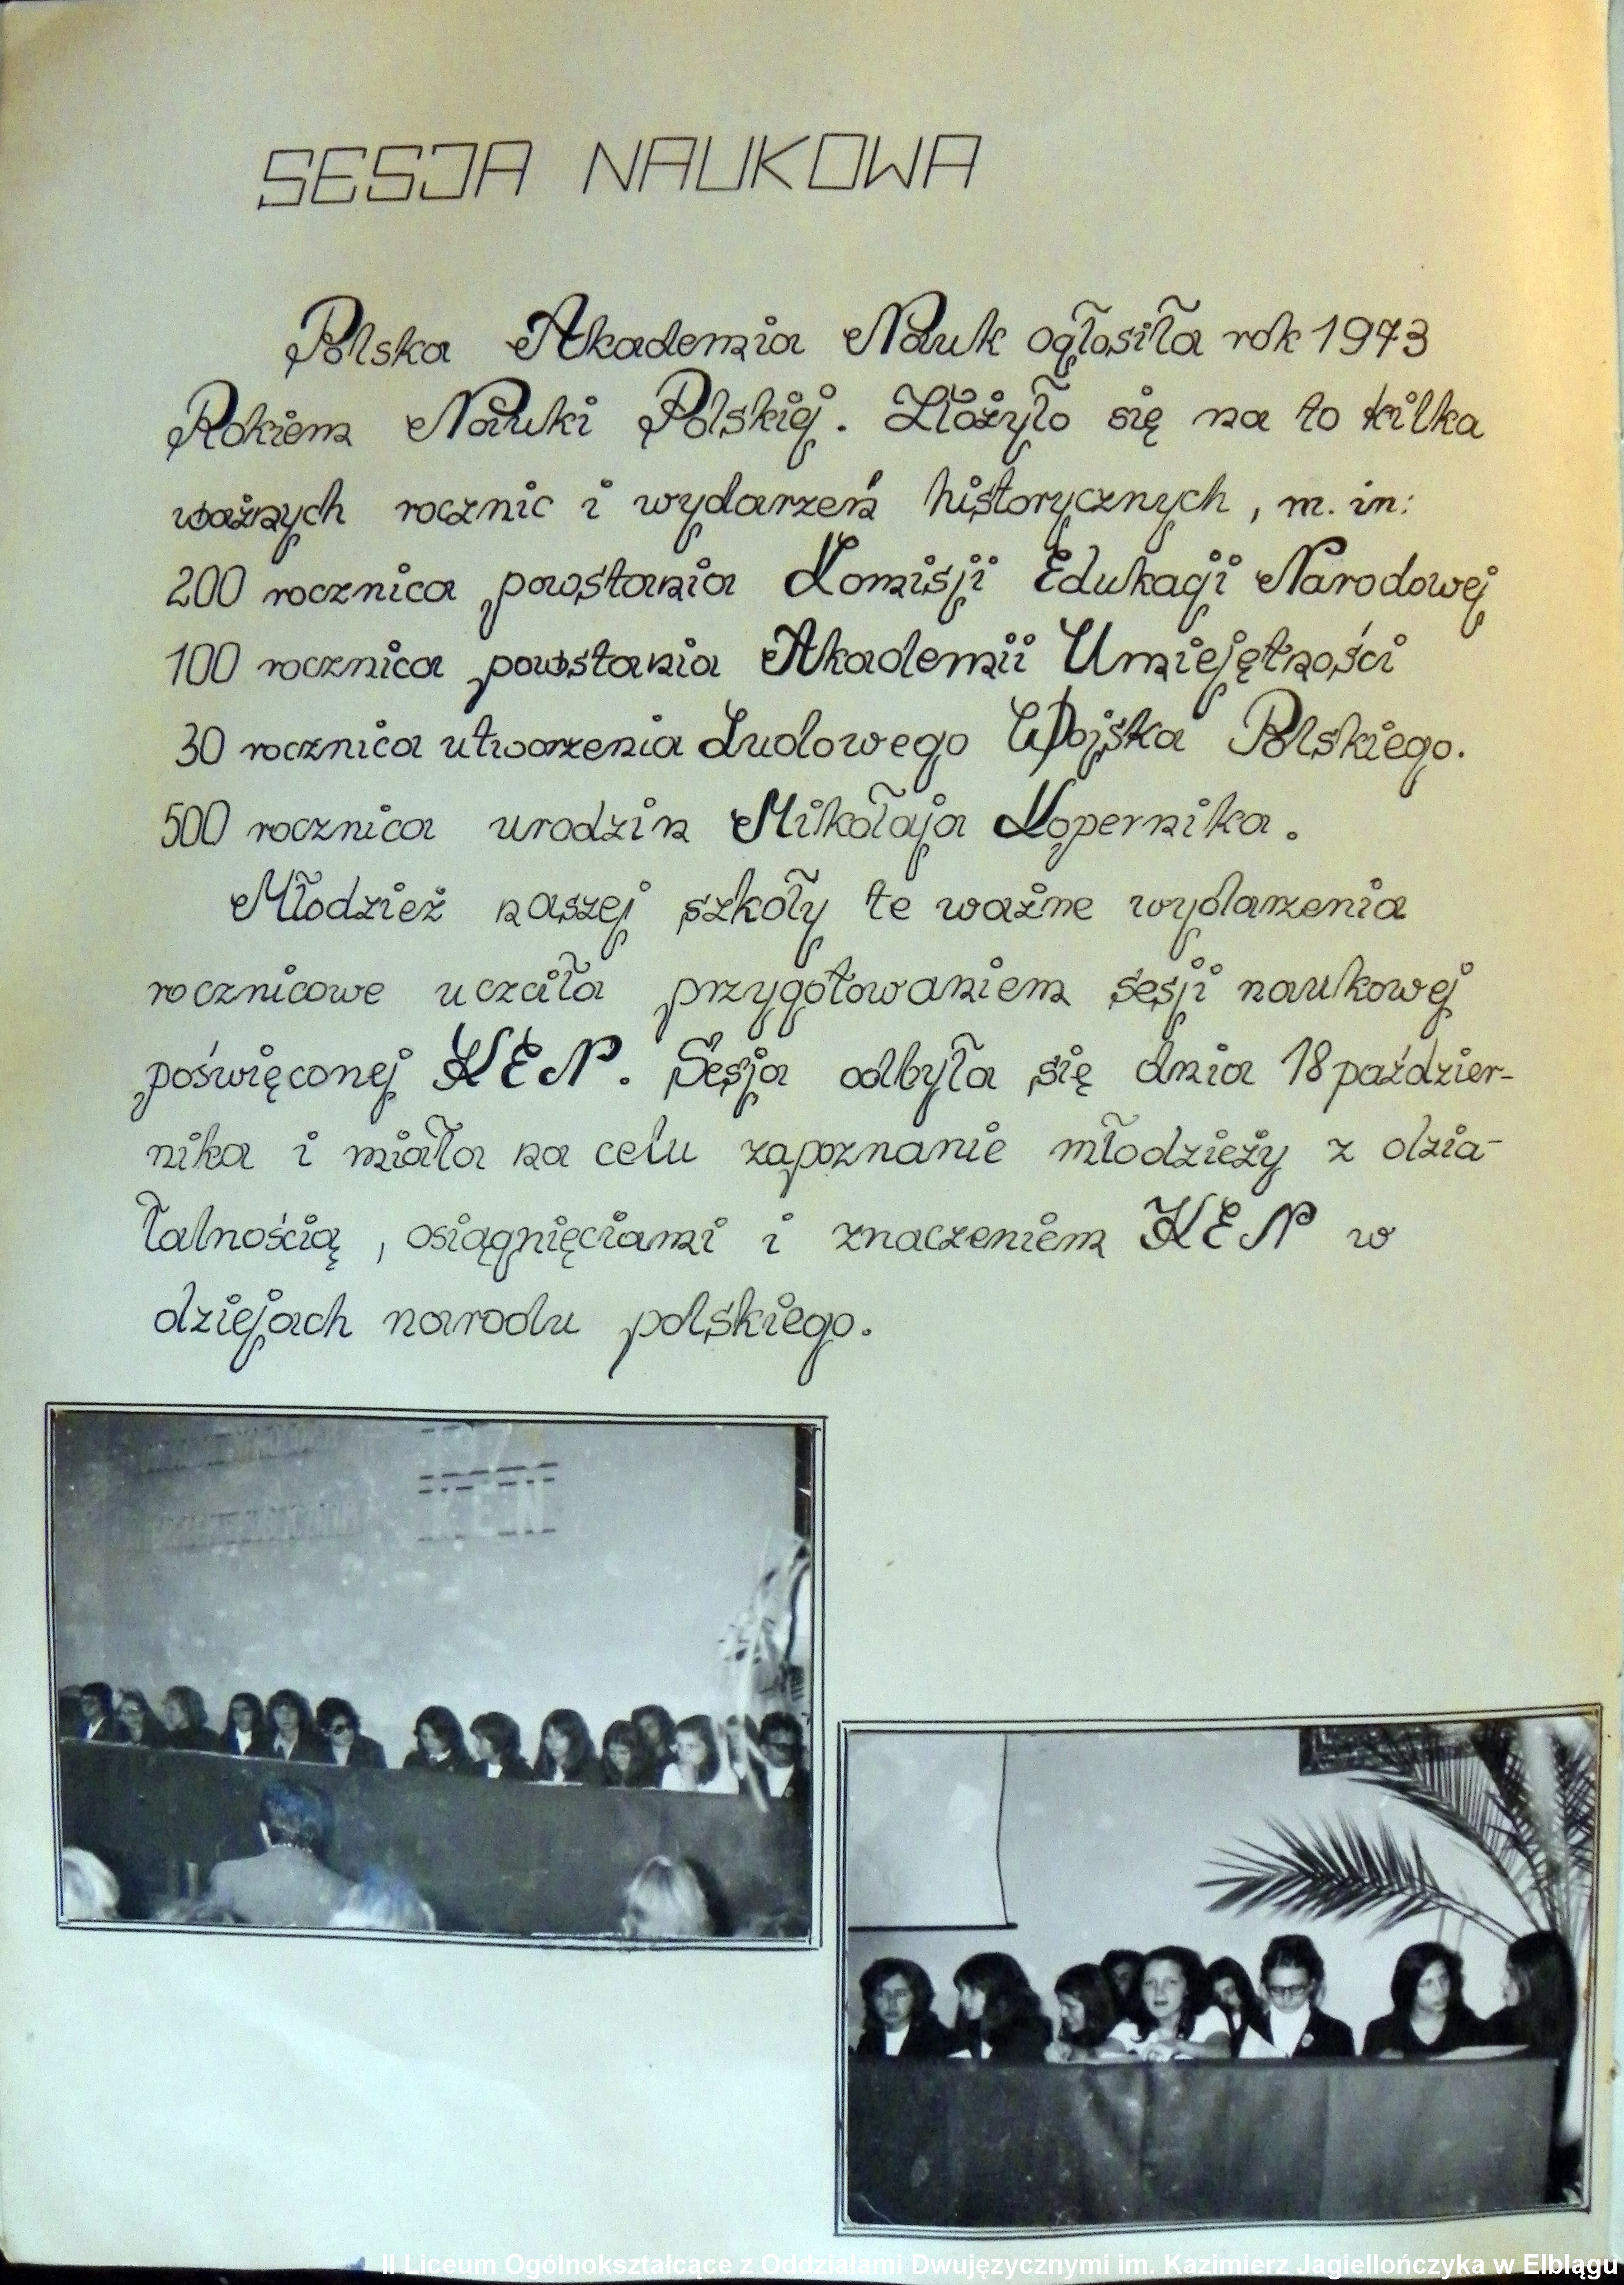 SESJA NAUKOWA
Polska Akademia Nauk ogłosiła rok 1973
Rokiem Nauki Polskiej. Złożyło się na to kilka
ważnych rocznic i wydarzeń historycznych, m. in:
200 rocznica powstania Komisji Edukacji Narodowej
100 rocznica powstania Akademii Umiejętności
30 rocznica utworzenia Ludowego Wojska Polskiego.
500 rocznica urodzin Mikołaja Kopernika.
Młodzież naszej szkoły te ważne wydarzenia
rocznicowe uczciła przygotowaniem sesji naukowej
poświęconej KEN. Sesja odbyła się dnia 18 paździer-
nika i miała na celu zapoznanie młodzieży z dzia-
łalnością, osiągnięciami i znaczeniem KEN w
dziejach narodu polskiego.
KEN
II Liceum Ogólnokształcące z Oddziałami Dwujęzycznymi im. Kazimierz Jagiellończyka w Elblągu